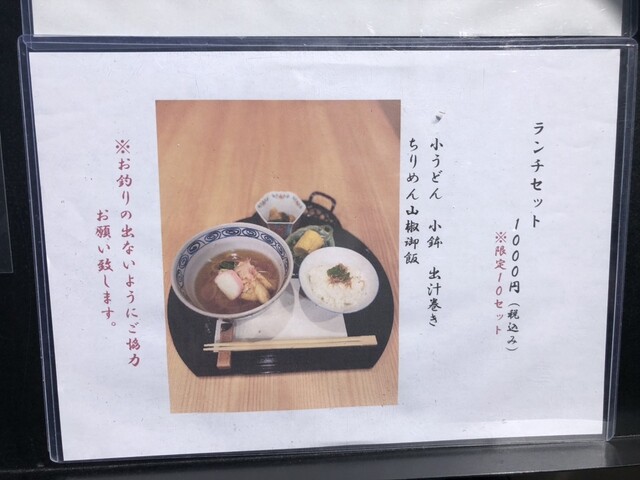 ランチセット
1000円(税込み)
※限定10セット
小うどん 小鉢 出汁巻き
ちりめん山椒御飯
※お釣りの出ないようにご協力
お願い致します。